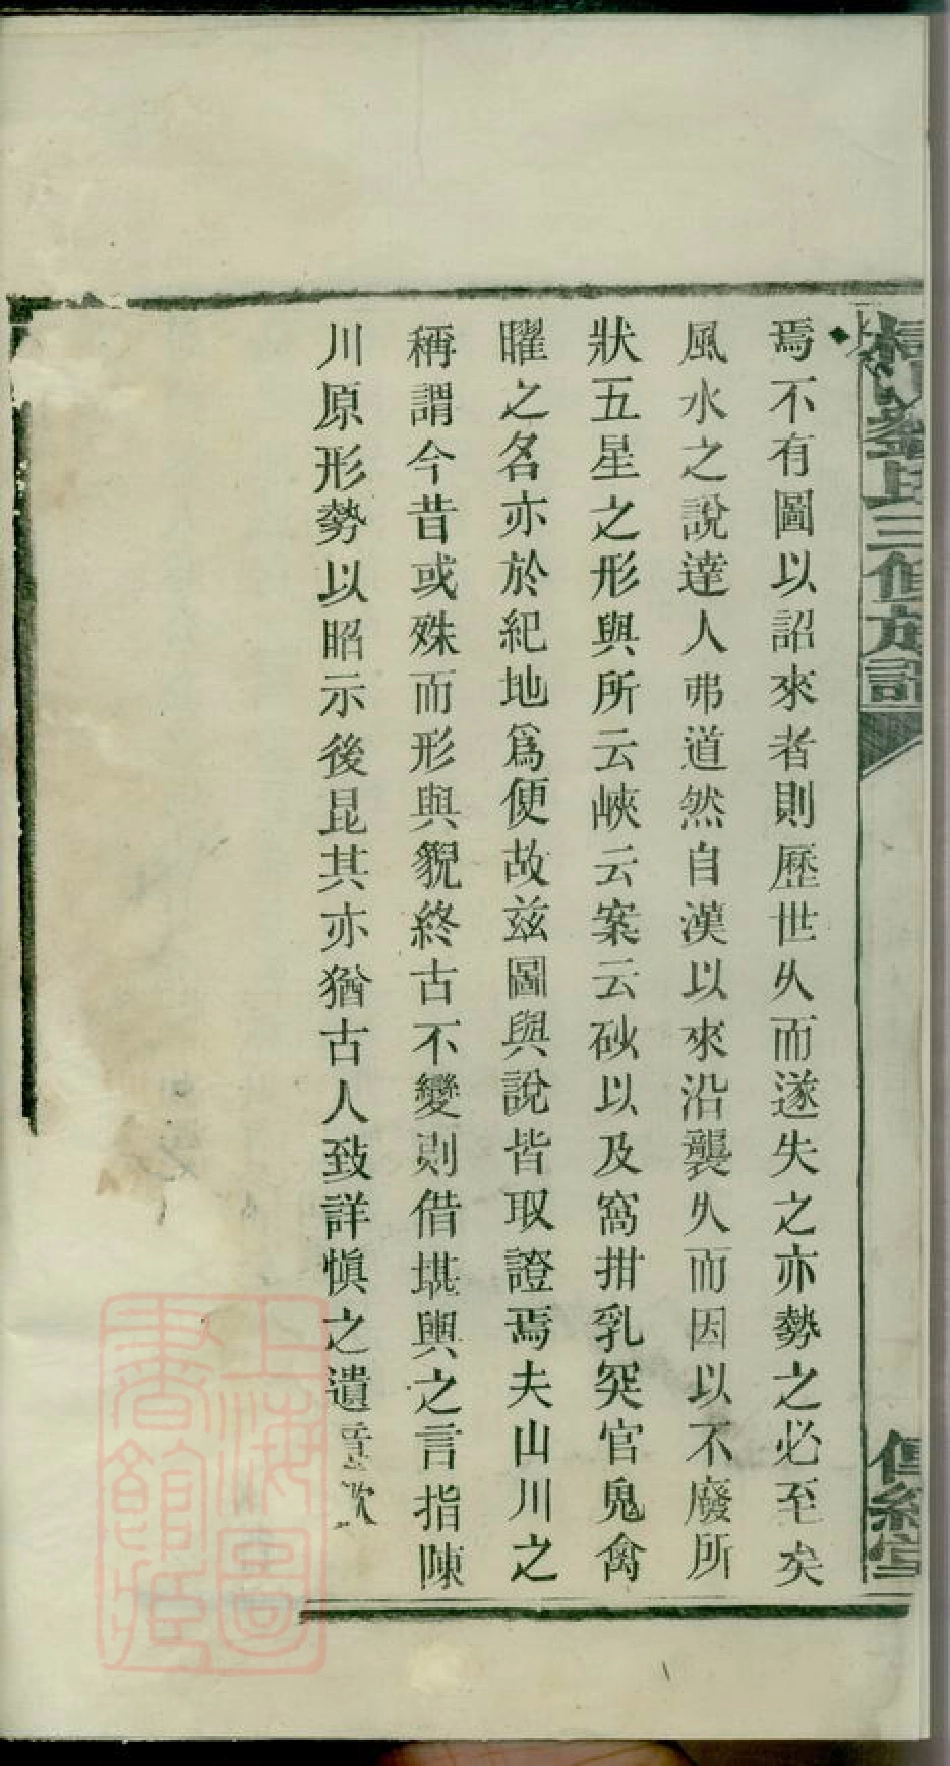 焉不有圖以詔來者則歷世久而遂失之亦勢之必至矣
風水之說達人弗道然自漢以來沿襲久而因以不廢所
狀五星之形與所云峽云案云砂以及窩拑乳突官鬼禽
曜之名亦於紀地為便故茲圖與說皆取證焉夫山川之
稱謂今昔或殊而形與貌終古不變則借堪輿之言指陳
川原形勢以昭示後昆其亦猶古人致詳慎之遺意歟
劉氏三修族譜
傳經堂
上海圖
書館藏